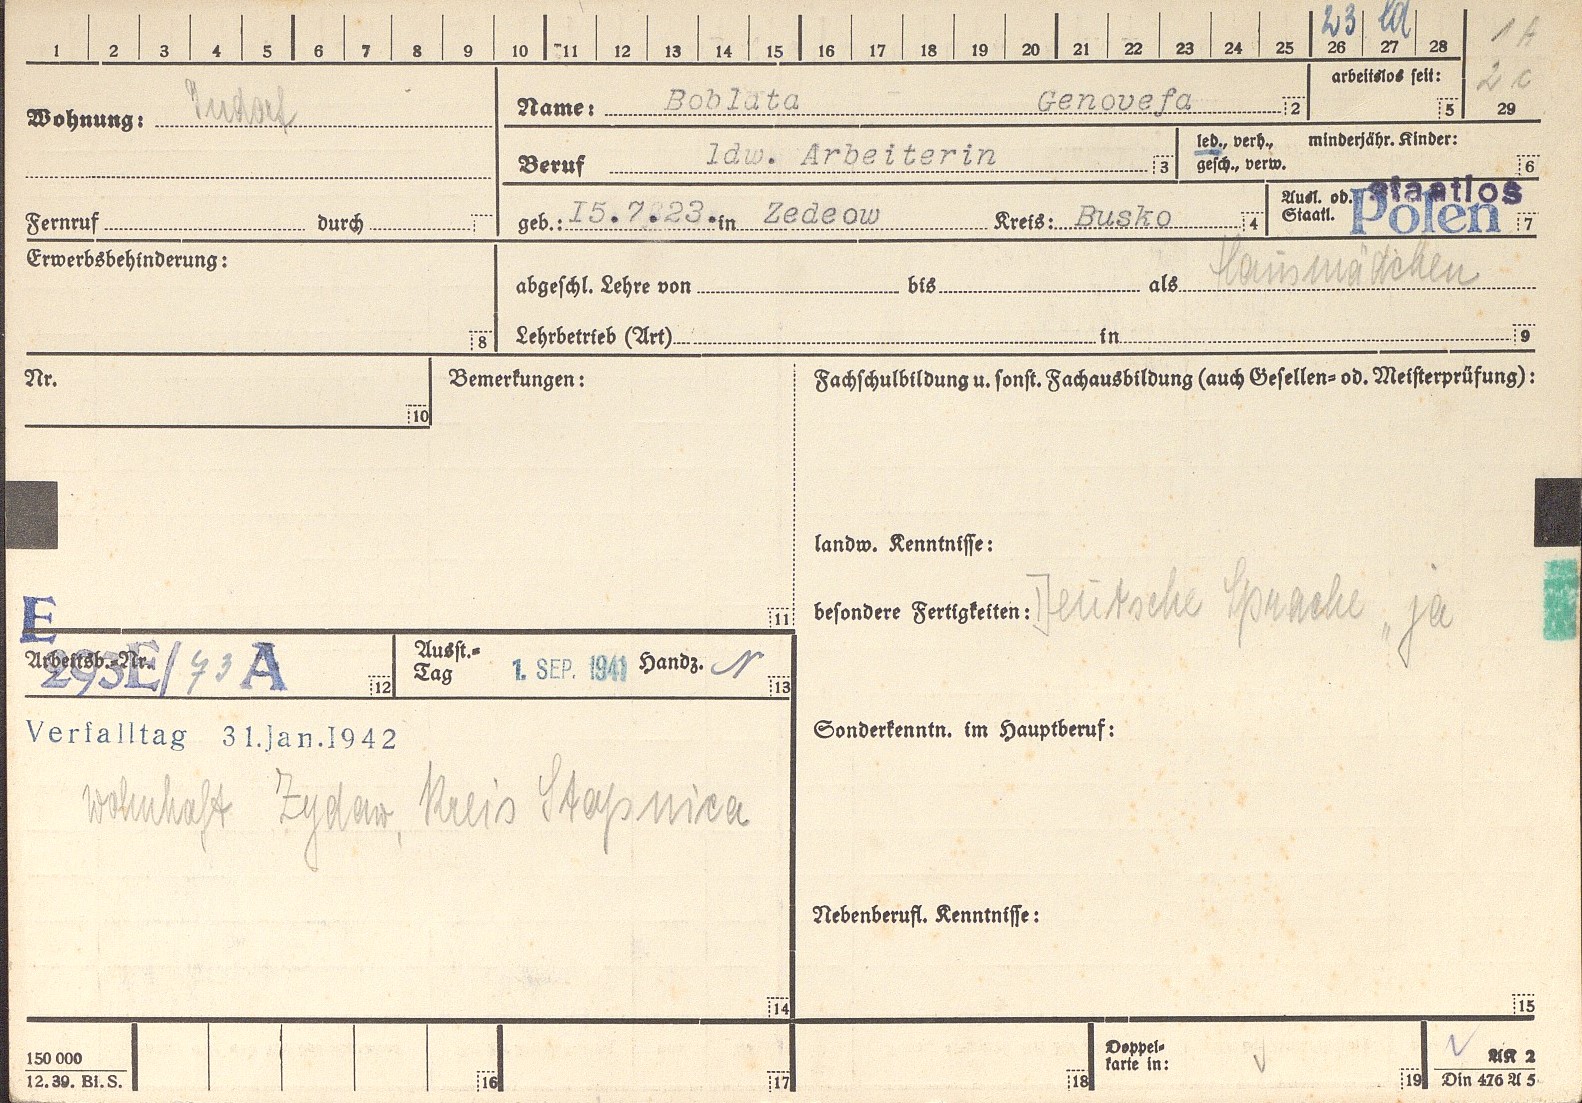 1 2 3 4 5 6 7 8 9 10 11 12 13 14 15 16 17 18 19 20 21 22 23 24 25 26 27 28
23
1 A
2 c
29
Wohnung:
Name: Boblata Genovefa 2
arbeitslos seit: 5
Beruf ldw. Arbeiterin 3
led., verh., gesch., verw.
minderjähr. Kinder: 6
Fernruf durch
geb.: I5.7.23. in Zedeow Kreis: Busko 4
Ausl. od. Staatl. staatlos Polen 7
Erwerbsbehinderung: 8
abgeschl. Lehre von bis als Hausmädchen
Lehrbetrieb (Art) in 9
Nr. 10
Bemerkungen: 11
Fachschulbildung u. sonst. Fachausbildung (auch Gesellen- od. Meisterprüfung):
landw. Kenntnisse:
besondere Fertigkeiten: Deutsche Sprache „ja
E
Arbeitsb.-Nr. 293E/73 A 12
Ausst.-Tag 1. SEP. 1941 Handz. N 13
Verfalltag 31.Jan.I942
wohnhaft Zydaw, Kreis Stopnica
14
Sonderkenntn. im Hauptberuf:
Nebenberufl. Kenntnisse:
15
150 000
12.39. Bl. S.
16 17 18
Doppel-
karte in: 19
AK 2
Din 476 A 5